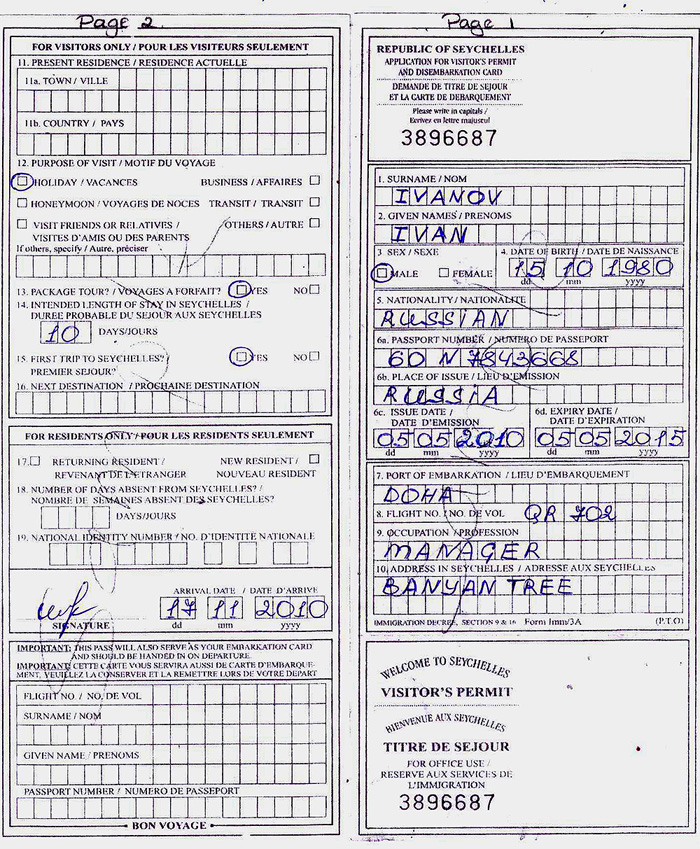 Page 2
FOR VISITORS ONLY / POUR LES VISITEURS SEULEMENT
11. PRESENT RESIDENCE / RESIDENCE ACTUELLE
11a. TOWN / VILLE
11b. COUNTRY / PAYS
12. PURPOSE OF VISIT / MOTIF DU VOYAGE
HOLIDAY / VACANCES BUSINESS / AFFAIRES
HONEYMOON / VOYAGES DE NOCES TRANSIT / TRANSIT
VISIT FRIENDS OR RELATIVES / OTHERS / AUTRE
VISITES D'AMIS OU DES PARENTS
If others, specify / Autre, préciser
13. PACKAGE TOUR? / VOYAGES A FORFAIT? YES NO
14. INTENDED LENGTH OF STAY IN SEYCHELLES /
DURÉE PROBABLE DU SEJOUR AUX SEYCHELLES
10 DAYS/JOURS
15. FIRST TRIP TO SEYCHELLES? YES NO
PREMIER SEJOUR?
16. NEXT DESTINATION / PROCHAINE DESTINATION
FOR RESIDENTS ONLY / POUR LES RESIDENTS SEULEMENT
17. RETURNING RESIDENT / NEW RESIDENT /
REVENANT DE L'ETRANGER NOUVEAU RESIDENT
18. NUMBER OF DAYS ABSENT FROM SEYCHELLES? /
NOMBRE DE SEMAINES ABSENT DES SEYCHELLES?
DAYS/JOURS
19. NATIONAL IDENTITY NUMBER / NO. D'IDENTITE NATIONALE
ARRIVAL DATE / DATE D'ARRIVE
17 11 2010
SIGNATURE dd mm yyyy
IMPORTANT: THIS PASS WILL ALSO SERVE AS YOUR EMBARKATION CARD
AND SHOULD BE HANDED IN ON DEPARTURE
IMPORTANT: CETTE CARTE VOUS SERVIRA AUSSI DE CARTE D'EMBARQUE-
MENT, VEUILLEZ LA CONSERVER ET LA REMETTRE LORS DE VOTRE DEPART
FLIGHT NO. / NO. DE VOL
SURNAME / NOM
GIVEN NAME / PRENOMS
PASSPORT NUMBER / NUMERO DE PASSEPORT
BON VOYAGE
Page 1
REPUBLIC OF SEYCHELLES
APPLICATION FOR VISITOR'S PERMIT
AND DISEMBARKATION CARD
DEMANDE DE TITRE DE SEJOUR
ET LA CARTE DE DEBARQUEMENT
Please write in capitals /
Ecrivez en lettre majuscul
3896687
1. SURNAME / NOM
IVANOV
2. GIVEN NAMES / PRENOMS
IVAN
3 SEX / SEXE 4. DATE OF BIRTH / DATE DE NAISSANCE
MALE FEMALE 15 10 1980
dd mm yyyy
5. NATIONALITY / NATIONALITE
RUSSIAN
6a. PASSPORT NUMBER / NUMERO DE PASSEPORT
60 N 7843668
6b. PLACE OF ISSUE / LIEU D'EMISSION
RUSSIA
6c. ISSUE DATE / 6d. EXPIRY DATE /
DATE D'EMISSION DATE D'EXPIRATION
05 05 2010 05 05 2015
dd mm yyyy dd mm yyyy
7. PORT OF EMBARKATION / LIEU D'EMBARQUEMENT
DOHA
8. FLIGHT NO. / NO. DE VOL QR 702
9. OCCUPATION / PROFESSION
MANAGER
10. ADDRESS IN SEYCHELLES / ADRESSE AUX SEYCHELLES
BANYAN TREE
IMMIGRATION DECREE, SECTION 9 & 16 Form Imm/3A (P.T.O)
WELCOME TO SEYCHELLES
VISITOR'S PERMIT
BIENVENUE AUX SEYCHELLES
TITRE DE SEJOUR
FOR OFFICE USE /
RESERVE AUX SERVICES DE
L'IMMIGRATION
3896687